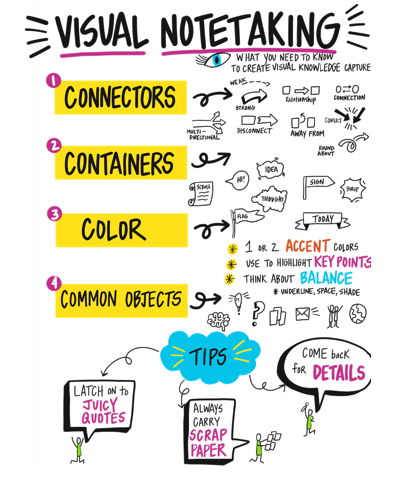 VISUAL NOTETAKING
WHAT YOU NEED TO KNOW
TO CREATE VISUAL KNOWLEDGE CAPTURE
1
CONNECTORS
WEAK
STRONG
RELATIONSHIP
CONNECTION
MULTI-
DIRECTIONAL
DISCONNECT
AWAY FROM
CONFLICT
ROUND
ABOUT
2
CONTAINERS
SCROLL
HEY!
IDEA
THOUGHT
SIGN
BURST
3
COLOR
FLAG
TODAY
* 1 OR 2 ACCENT COLORS
* USE TO HIGHLIGHT KEY POINTS
* THINK ABOUT BALANCE
* UNDERLINE, SPACE, SHADE
4
COMMON OBJECTS
!
?
TIPS
LATCH ON TO
JUICY
QUOTES
ALWAYS
CARRY
SCRAP
PAPER
COME back
for DETAILS